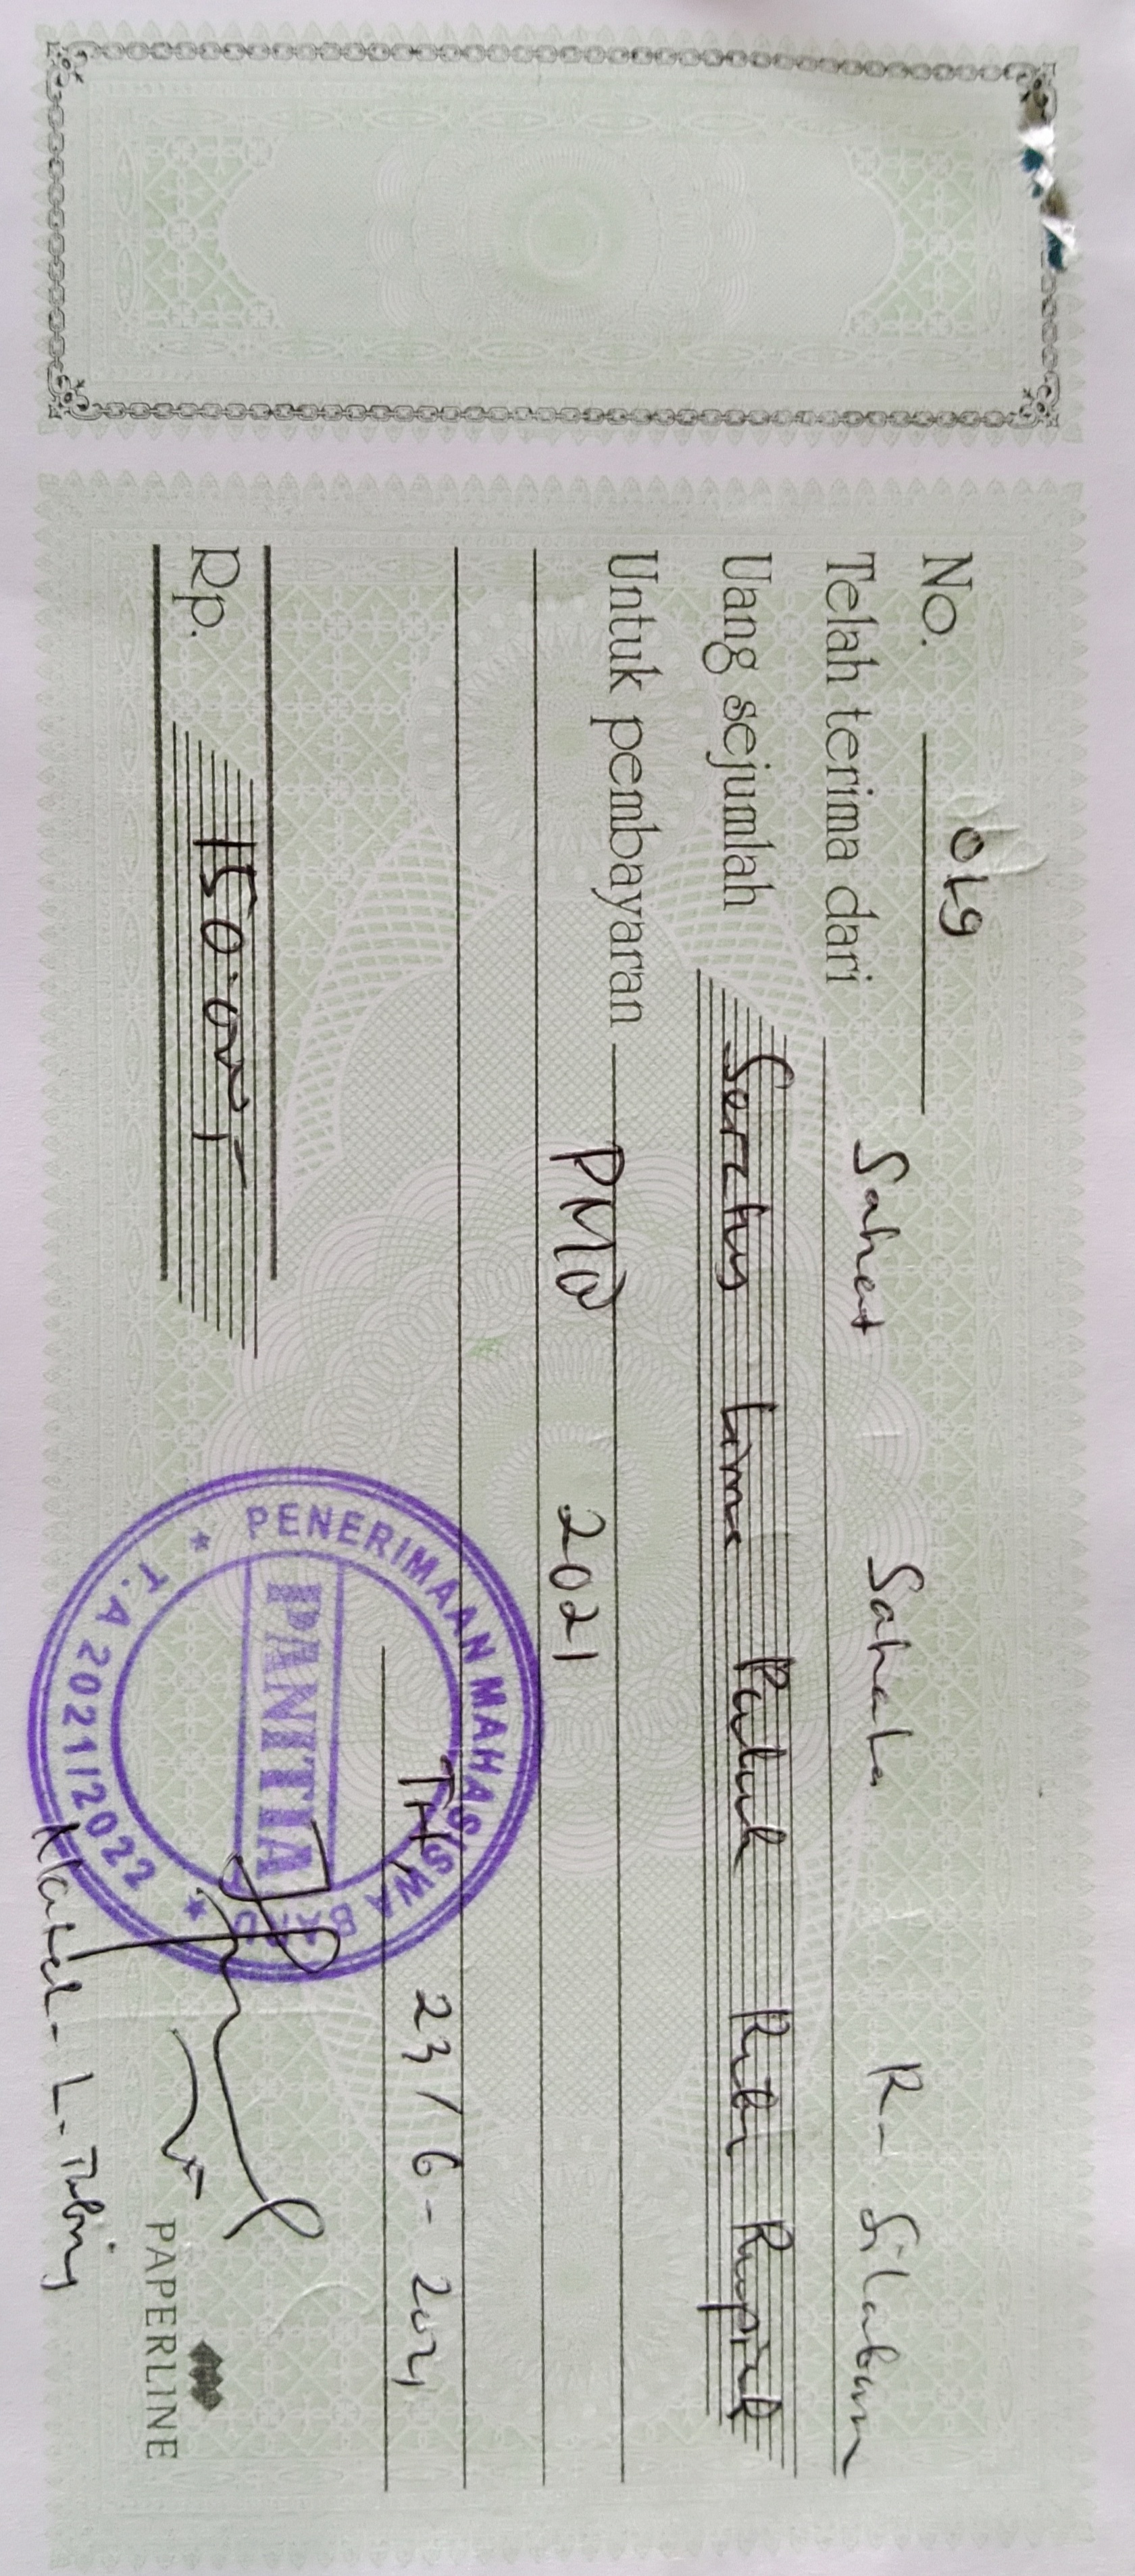 No. 019
Telah terima dari Sahat Sahala R. Silaban
Uang sejumlah Seratus Lima Puluh Ribu Rupiah
Untuk pembayaran PMB 2021
TH, 23/6-2021
Rp. 150.000,-
PENERIMAAN MAHASISWA BARU
PANITIA
T.A 2021/2022
L.
PAPERLINE